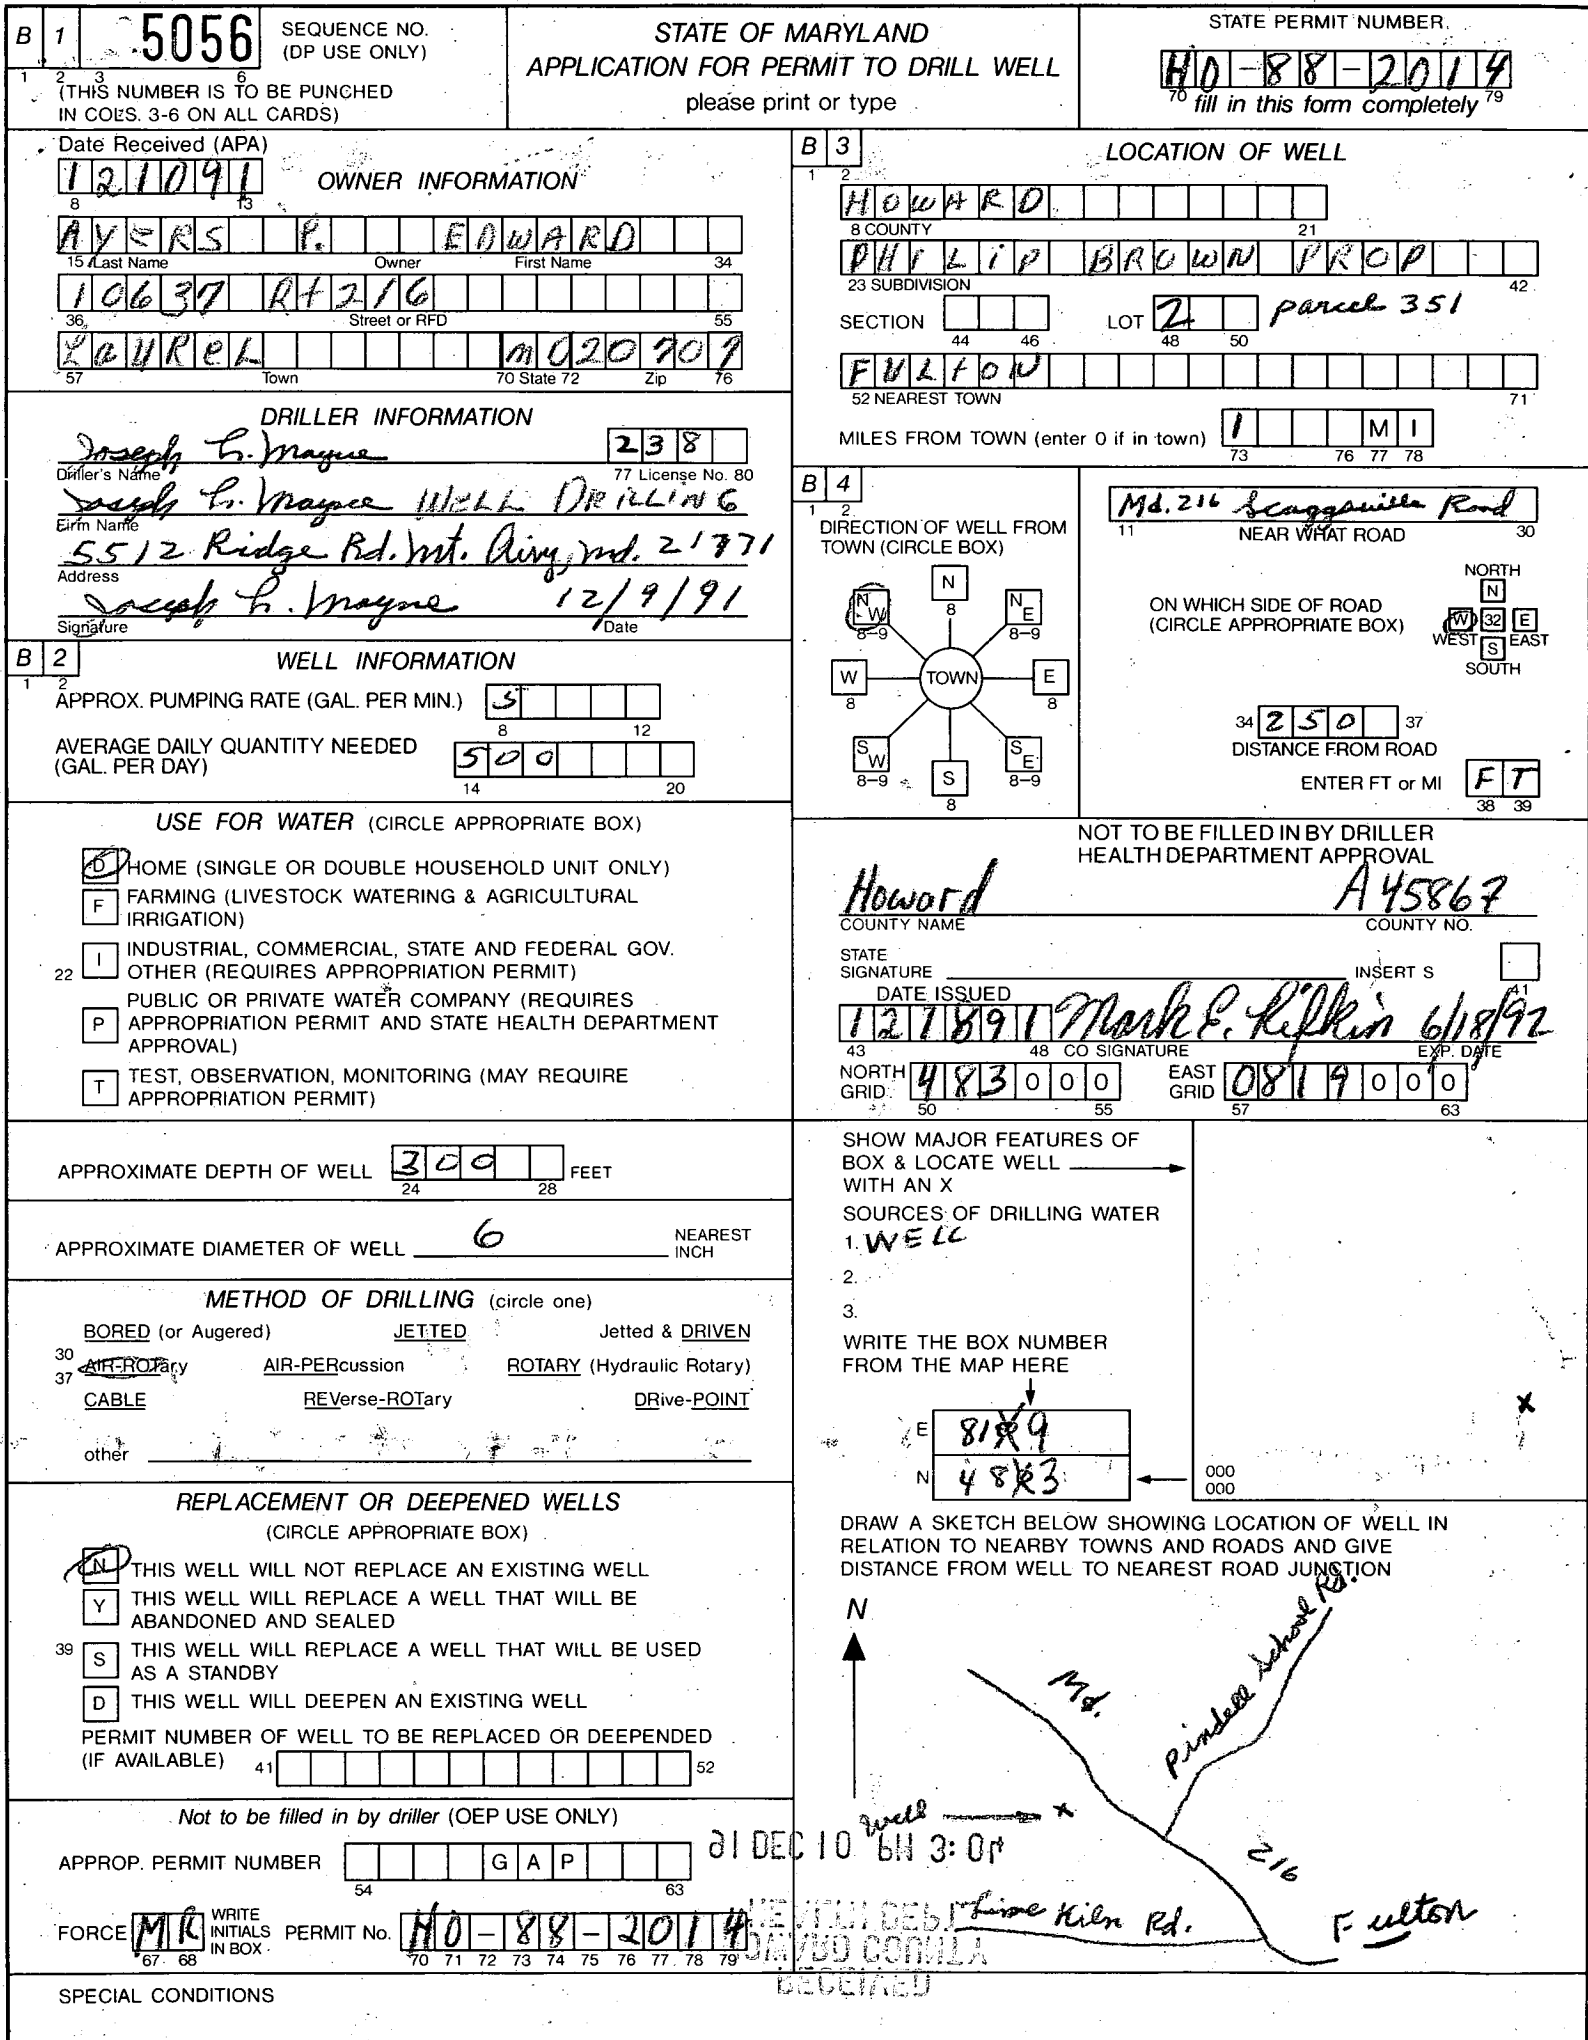 B 1 5056 SEQUENCE NO.
(DP USE ONLY)
1 2 3 6
(THIS NUMBER IS TO BE PUNCHED
IN COLS. 3-6 ON ALL CARDS)
STATE OF MARYLAND
APPLICATION FOR PERMIT TO DRILL WELL
please print or type
STATE PERMIT NUMBER
HO-88-2014
70 fill in this form completely 79
Date Received (APA)
121091
8 13
OWNER INFORMATION
AYERS P. EDWARD
15 Last Name Owner First Name 34
10637 Rt 216
36 Street or RFD 55
LauReL MD 20707
57 Town 70 State 72 Zip 76
DRILLER INFORMATION
Joseph L. Mayne 238
Driller's Name 77 License No. 80
Joseph L. Mayne WELL DRILLING
Firm Name
5512 Ridge Rd. Mt. Airy, Md. 21771
Address
Joseph L. Mayne 12/9/91
Signature Date
B 2 WELL INFORMATION
1 2
APPROX. PUMPING RATE (GAL. PER MIN.) 5
8 12
AVERAGE DAILY QUANTITY NEEDED
(GAL. PER DAY) 500
14 20
USE FOR WATER (CIRCLE APPROPRIATE BOX)
D HOME (SINGLE OR DOUBLE HOUSEHOLD UNIT ONLY)
F FARMING (LIVESTOCK WATERING & AGRICULTURAL
IRRIGATION)
22 I INDUSTRIAL, COMMERCIAL, STATE AND FEDERAL GOV.
OTHER (REQUIRES APPROPRIATION PERMIT)
P PUBLIC OR PRIVATE WATER COMPANY (REQUIRES
APPROPRIATION PERMIT AND STATE HEALTH DEPARTMENT
APPROVAL)
T TEST, OBSERVATION, MONITORING (MAY REQUIRE
APPROPRIATION PERMIT)
APPROXIMATE DEPTH OF WELL 300 FEET
24 28
APPROXIMATE DIAMETER OF WELL 6 NEAREST
INCH
METHOD OF DRILLING (circle one)
BORED (or Augered) JETTED Jetted & DRIVEN
30 AIR-ROTary AIR-PERcussion ROTARY (Hydraulic Rotary)
37
CABLE REVerse-ROTary DRive-POINT
other
REPLACEMENT OR DEEPENED WELLS
(CIRCLE APPROPRIATE BOX)
N THIS WELL WILL NOT REPLACE AN EXISTING WELL
Y THIS WELL WILL REPLACE A WELL THAT WILL BE
ABANDONED AND SEALED
39 S THIS WELL WILL REPLACE A WELL THAT WILL BE USED
AS A STANDBY
D THIS WELL WILL DEEPEN AN EXISTING WELL
PERMIT NUMBER OF WELL TO BE REPLACED OR DEEPENDED
(IF AVAILABLE) 41 52
Not to be filled in by driller (OEP USE ONLY)
APPROP. PERMIT NUMBER G A P
54 63
FORCE MR WRITE
INITIALS
IN BOX PERMIT No. HO-88-2014
67 68 70 71 72 73 74 75 76 77 78 79
SPECIAL CONDITIONS
B 3 LOCATION OF WELL
1 2
HOWARD
8 COUNTY 21
PHILIP BROWN PROP
23 SUBDIVISION 42
SECTION LOT 2 parcel 351
44 46 48 50
FULTON
52 NEAREST TOWN 71
MILES FROM TOWN (enter 0 if in town) 1 M I
73 76 77 78
B 4
1 2
DIRECTION OF WELL FROM
TOWN (CIRCLE BOX)
N
8
NW NE
8-9 8-9
W TOWN E
8 8
SW SE
8-9 8-9
S
8
Md. 216 Scaggsville Road
11 NEAR WHAT ROAD 30
ON WHICH SIDE OF ROAD
(CIRCLE APPROPRIATE BOX)
NORTH
N
W 32 E
WEST EAST
S
SOUTH
34 250 37
DISTANCE FROM ROAD
ENTER FT or MI FT
38 39
NOT TO BE FILLED IN BY DRILLER
HEALTH DEPARTMENT APPROVAL
Howard A45867
COUNTY NAME COUNTY NO.
STATE
SIGNATURE INSERT S
41
DATE ISSUED
121891 Mark E. Rifkin 6/18/92
43 48 CO SIGNATURE EXP. DATE
NORTH
GRID 483000 EAST
GRID 0819000
50 55 57 63
SHOW MAJOR FEATURES OF
BOX & LOCATE WELL
WITH AN X
SOURCES OF DRILLING WATER
1. WELL
2.
3.
WRITE THE BOX NUMBER
FROM THE MAP HERE
E 819
N 483
X
000
000
DRAW A SKETCH BELOW SHOWING LOCATION OF WELL IN
RELATION TO NEARBY TOWNS AND ROADS AND GIVE
DISTANCE FROM WELL TO NEAREST ROAD JUNCTION
N
Md.
Pindell School Rd.
Well x
216
Lime Kiln Rd.
Fulton
91 DEC 10 PM 3:
HEALTH DEPT
HOWARD COUNTY
RECEIVED